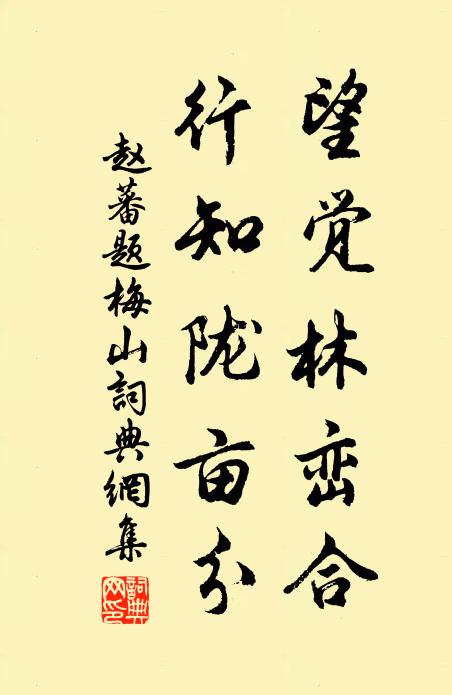 望觉林峦合
行知陇亩分
赵蕃题梅山詞典網集
詞典网印